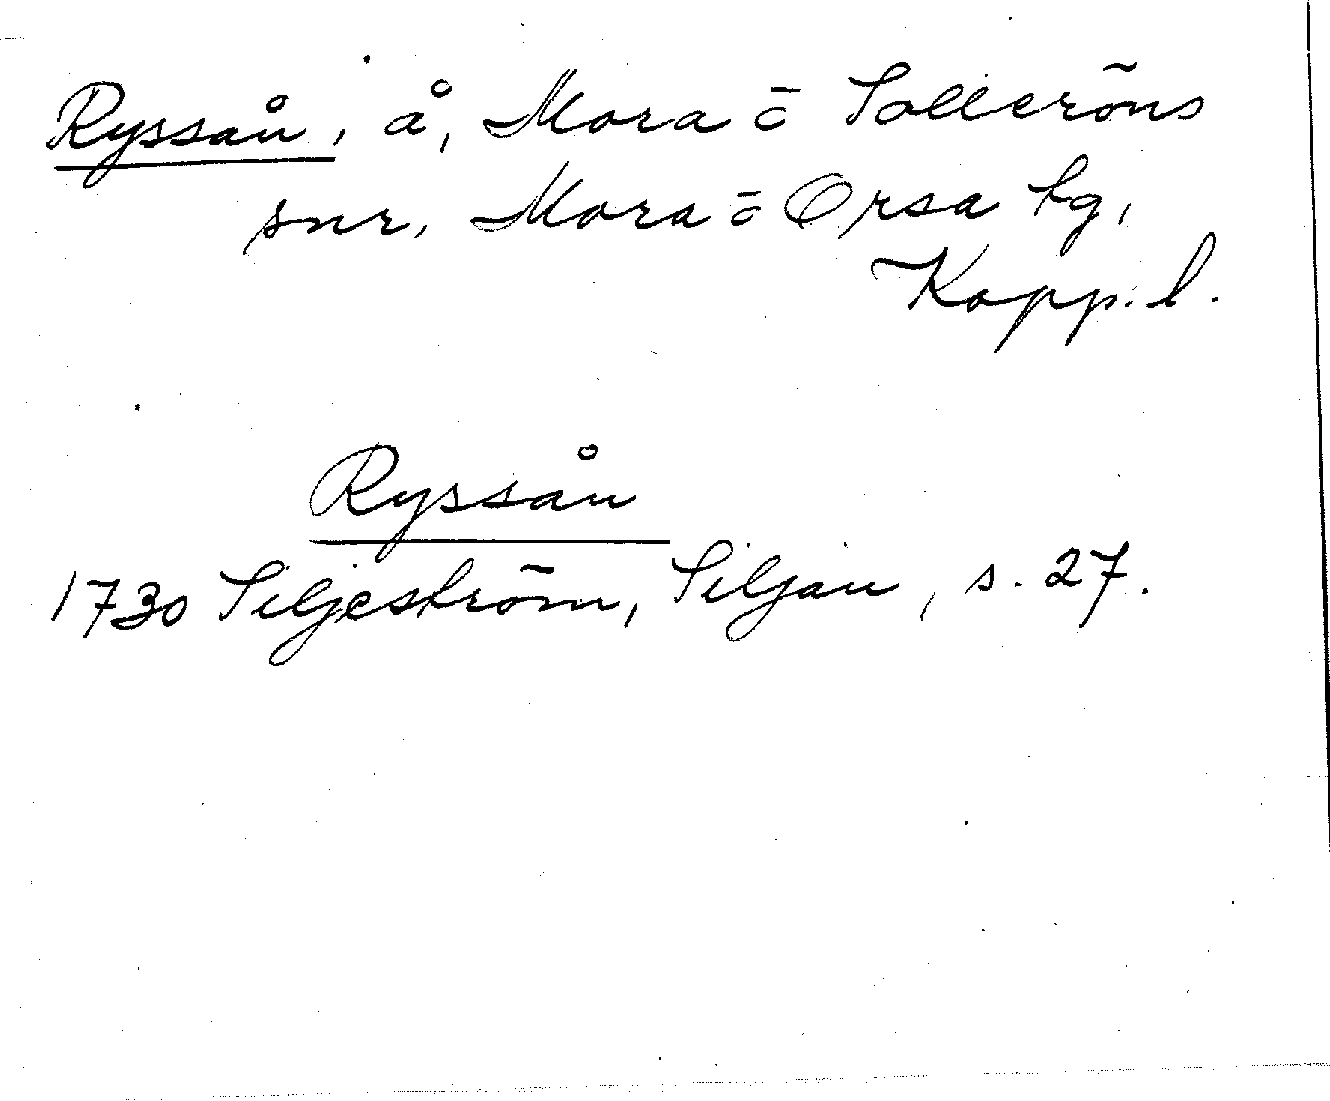 Ryssån, å, Mora o̅ Solleröns
snr, Mora o̅ Orsa tg,
Kopp. l.
Ryssån
1730 Siljeström, Siljan, s. 27.